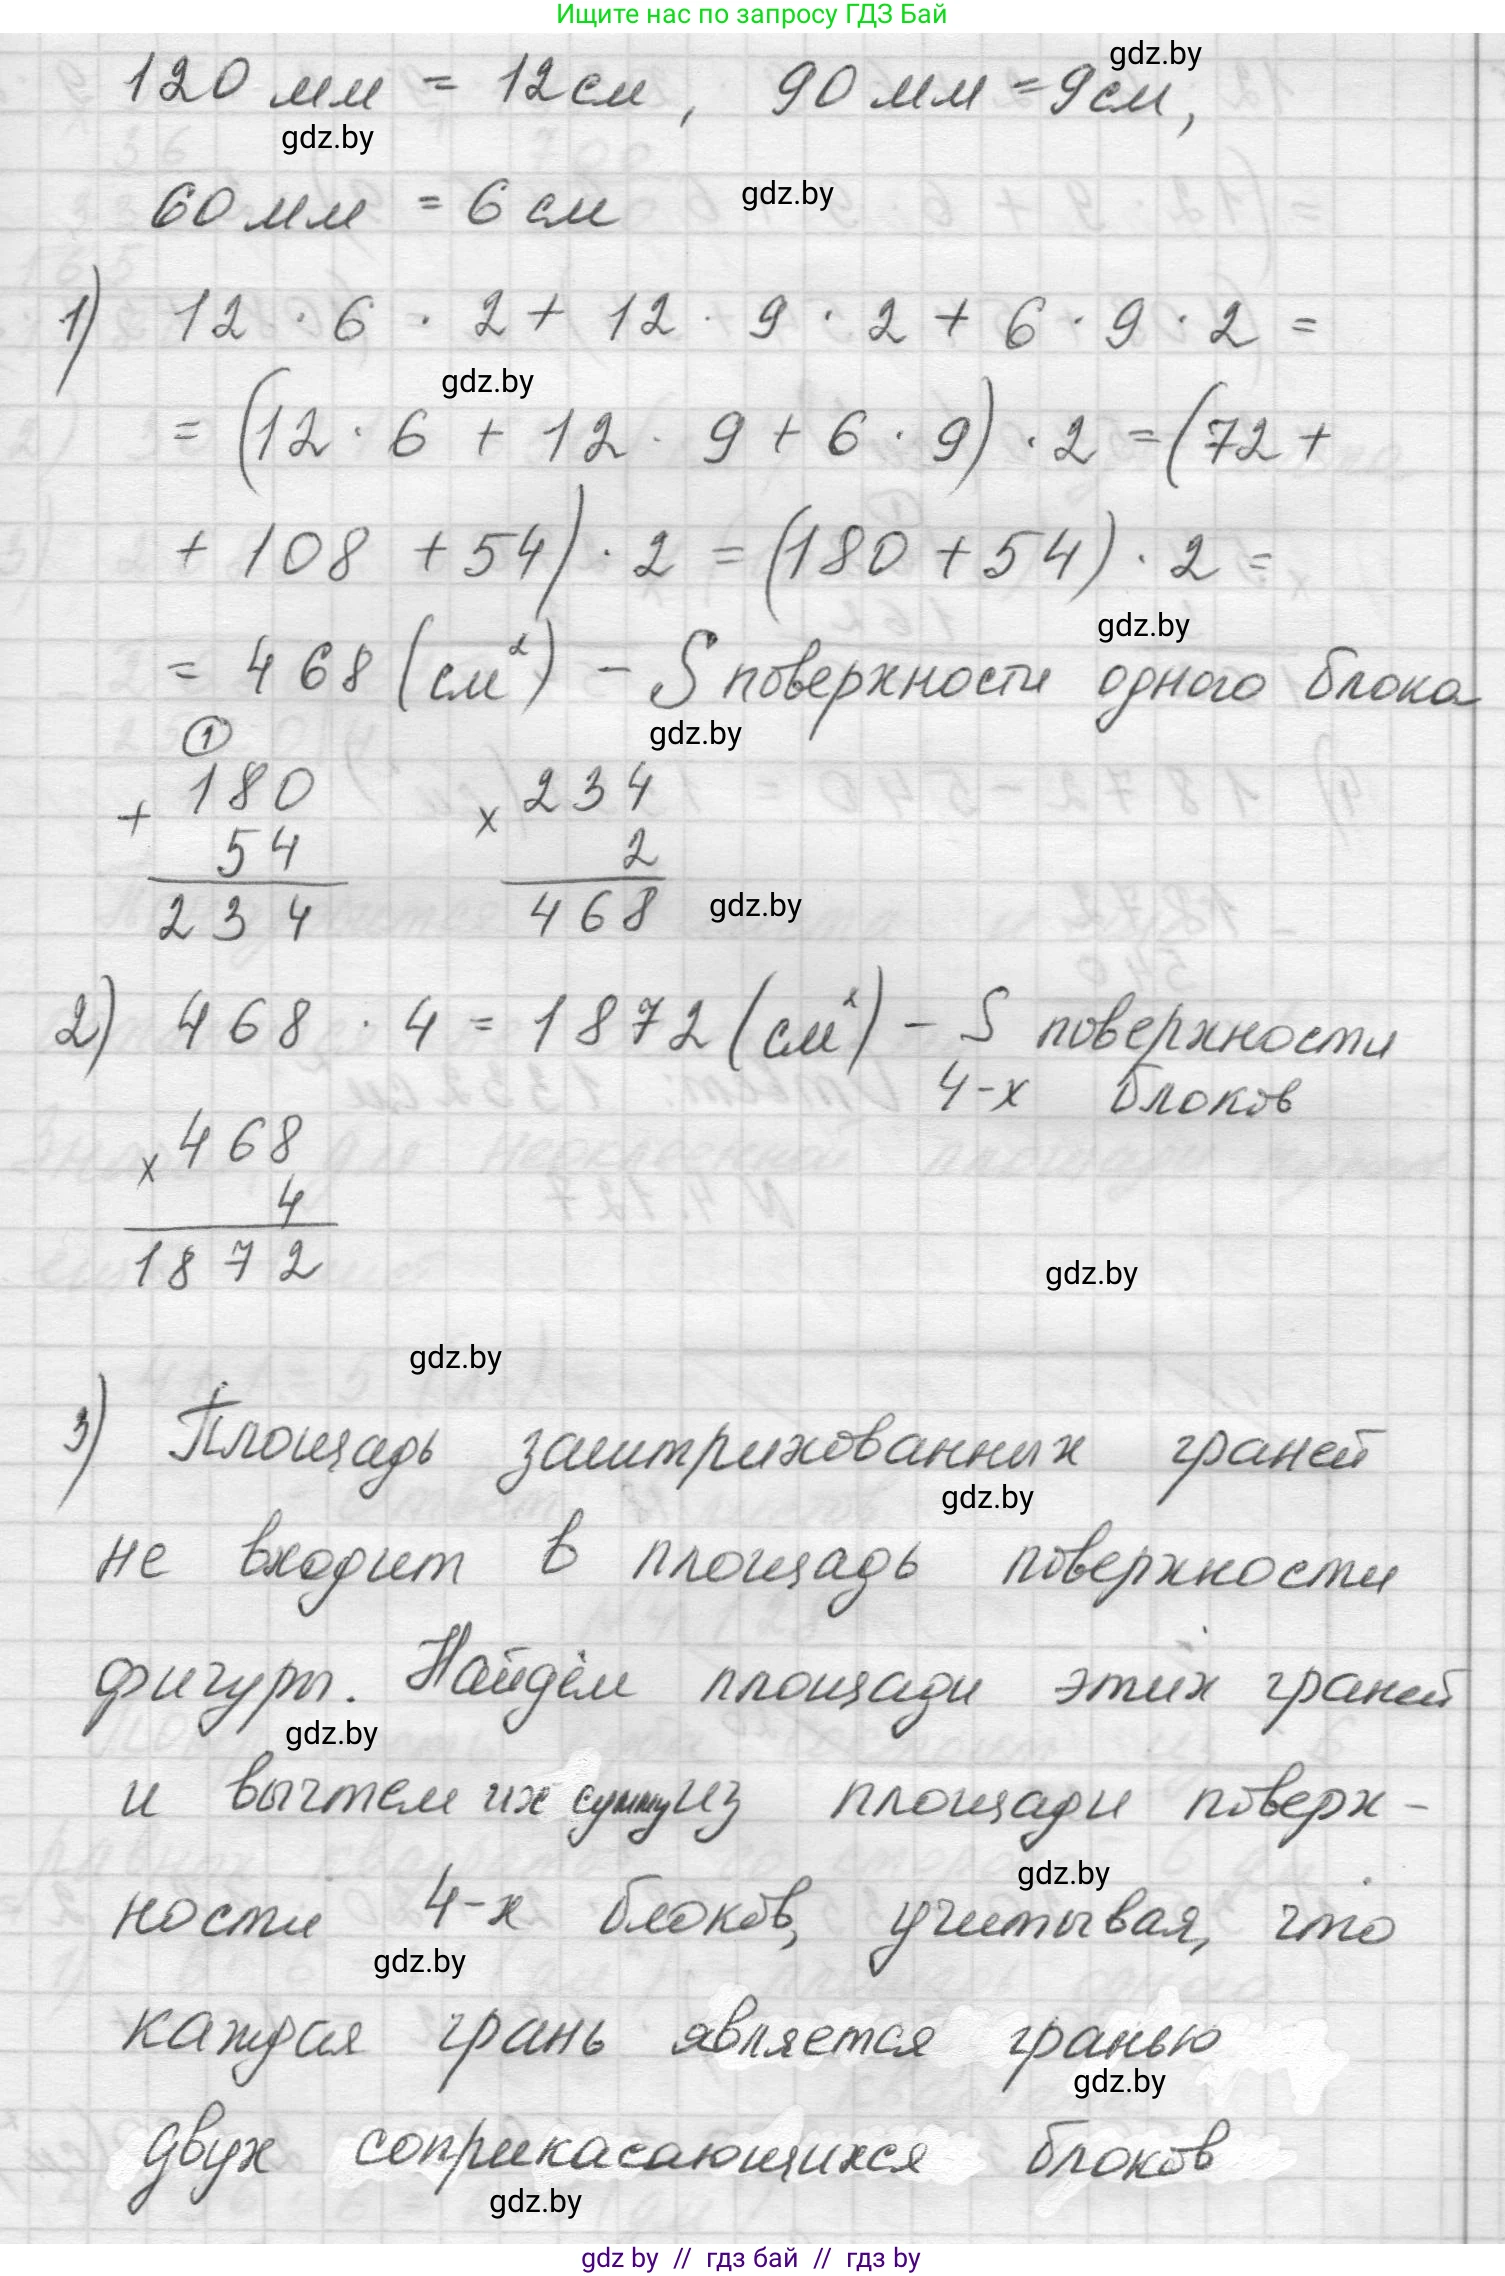 Ищите нас по запросу ГДЗ Бай
gdz.by
120 мм = 12 см, 90 мм = 9 см,
gdz.by
60 мм = 6 см
gdz.by
1) 12 · 6 · 2 + 12 · 9 · 2 + 6 · 9 · 2 =
gdz.by
= (12 · 6 + 12 · 9 + 6 · 9) · 2 = (72 +
+ 108 + 54) · 2 = (180 + 54) · 2 =
gdz.by
= 468 (см²) – S поверхности одного блока
gdz.by
1
+ 180 × 234
54 2
234 468
gdz.by
2) 468 · 4 = 1872 (см²) – S поверхности
4-х блоков
× 468
4
1872
gdz.by
gdz.by
3) Площадь заштрихованных граней
gdz.by
не входит в площадь поверхности
фигуры. Найдём площади этих граней
gdz.by
и вычтем их сумму из площади поверх-
gdz.by
ности 4-х блоков, учитывая, что
gdz.by
каждая грань является гранью
gdz.by
двух соприкасающихся блоков
gdz.by
gdz by // гдз бай // гдз by